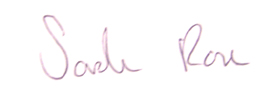 Sarah Rose